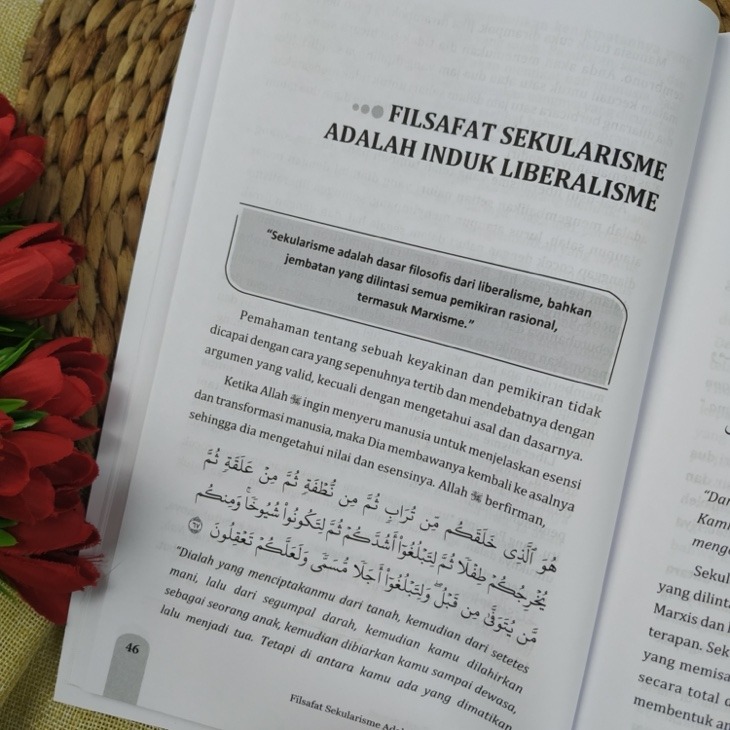 FILSAFAT SEKULARISME
ADALAH INDUK LIBERALISME
"Sekularisme adalah dasar filosofis dari liberalisme, bahkan
jembatan yang dilintasi semua pemikiran rasional,
termasuk Marxisme."
Pemahaman tentang sebuah keyakinan dan pemikiran tidak
dicapai dengan cara yang sepenuhnya tertib dan mendebatnya dengan
argumen yang valid, kecuali dengan mengetahui asal dan dasarnya.
Ketika Allah ﷻ ingin menyeru manusia untuk menjelaskan esensi
dan transformasi manusia, maka Dia membawanya kembali ke asalnya
sehingga dia mengetahui nilai dan esensinya. Allah ﷻ berfirman,
هُوَ ٱلَّذِى خَلَقَكُم مِّن تُرَابٍ ثُمَّ مِن نُّطْفَةٍ ثُمَّ مِنْ عَلَقَةٍ ثُمَّ
يُخْرِجُكُمْ طِفْلًا ثُمَّ لِتَبْلُغُوٓا۟ أَشُدَّكُمْ ثُمَّ لِتَكُونُوا۟ شُيُوخًا ۚ وَمِنكُم
مَّن يُتَوَفَّىٰ مِن قَبْلُ ۖ وَلِتَبْلُغُوٓا۟ أَجَلًا مُّسَمًّى وَلَعَلَّكُمْ تَعْقِلُونَ ٦٧
"Dialah yang menciptakanmu dari tanah, kemudian dari setetes
mani, lalu dari segumpal darah, kemudian kamu dilahirkan
sebagai seorang anak, kemudian dibiarkan kamu sampai dewasa,
lalu menjadi tua. Tetapi di antara kamu ada yang dimatikan
46
Filsafat Sekularisme
"Dar
Kami
meng
Sekul
yang dilint
Marxis dan
terapan. Sek
yang memisa
secara total d
membentuk